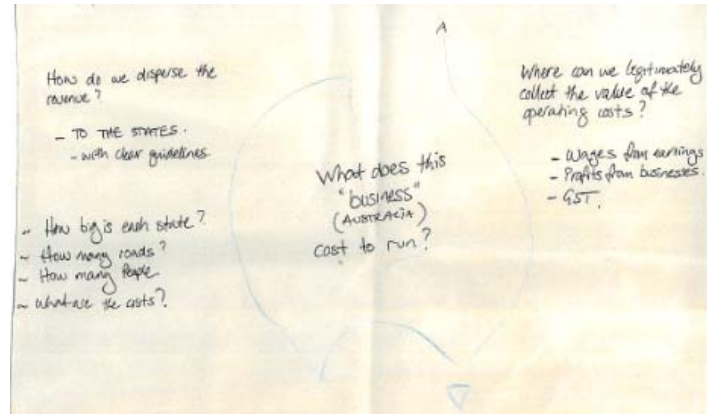 How do we disperse the
revenue?
- TO THE STATES.
- with clear guidelines
~ How big is each state?
~ How many roads?
~ How many People
~ What are the costs?
A
What does this
"business"
(AUSTRALIA)
cost to run?
Where can we legitimately
collect the value of the
operating costs?
- Wages from earnings
- Profits from businesses.
- GST.